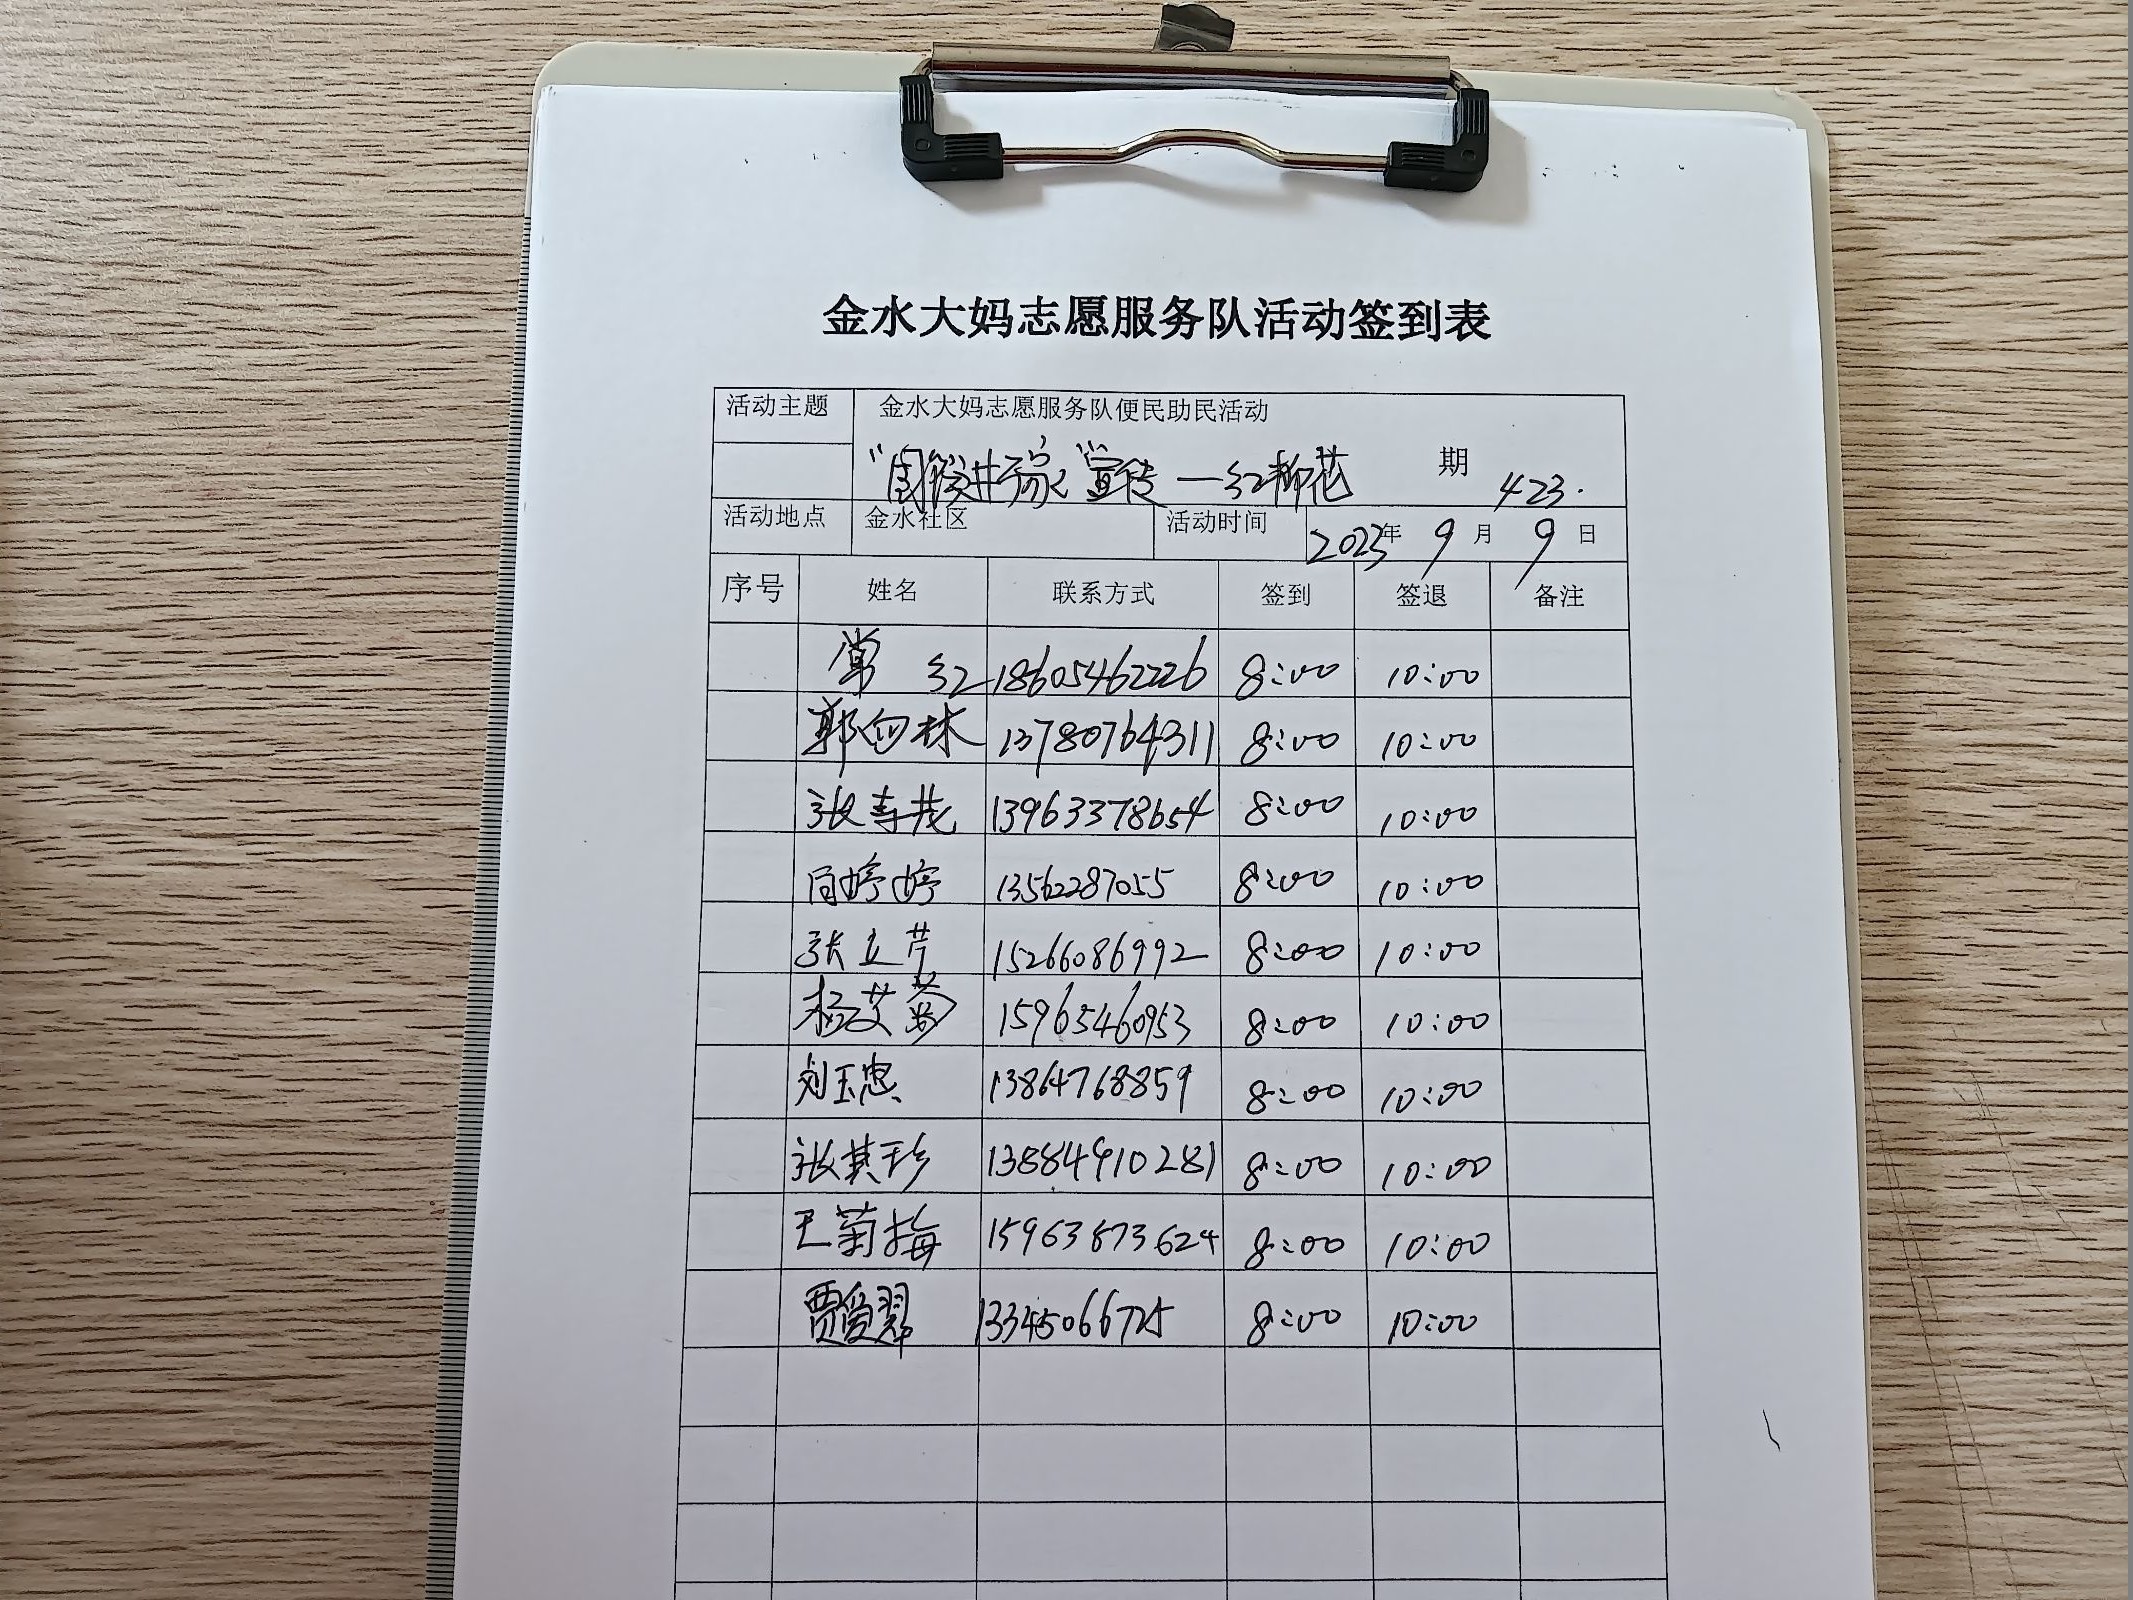 金水大妈志愿服务队活动签到表
活动主题 金水大妈志愿服务队便民助民活动
宣传一红柳花 期 423.
活动地点 金水社区 活动时间 2023年 9月 9日
序号 姓名 联系方式 签到 签退 备注
常红 18605462226 8:00 10:00
郭向林 13780764311 8:00 10:00
张寿茂 13963378654 8:00 10:00
婷婷 13562287055 8:00 10:00
张立芹 15266086992 8:00 10:00
杨艾菊 15965460953 8:00 10:00
刘玉忠 13864768859 8:00 10:00
张其珍 13884910281 8:00 10:00
王菊梅 15963873624 8:00 10:00
贾爱翠 13345066725 8:00 10:00